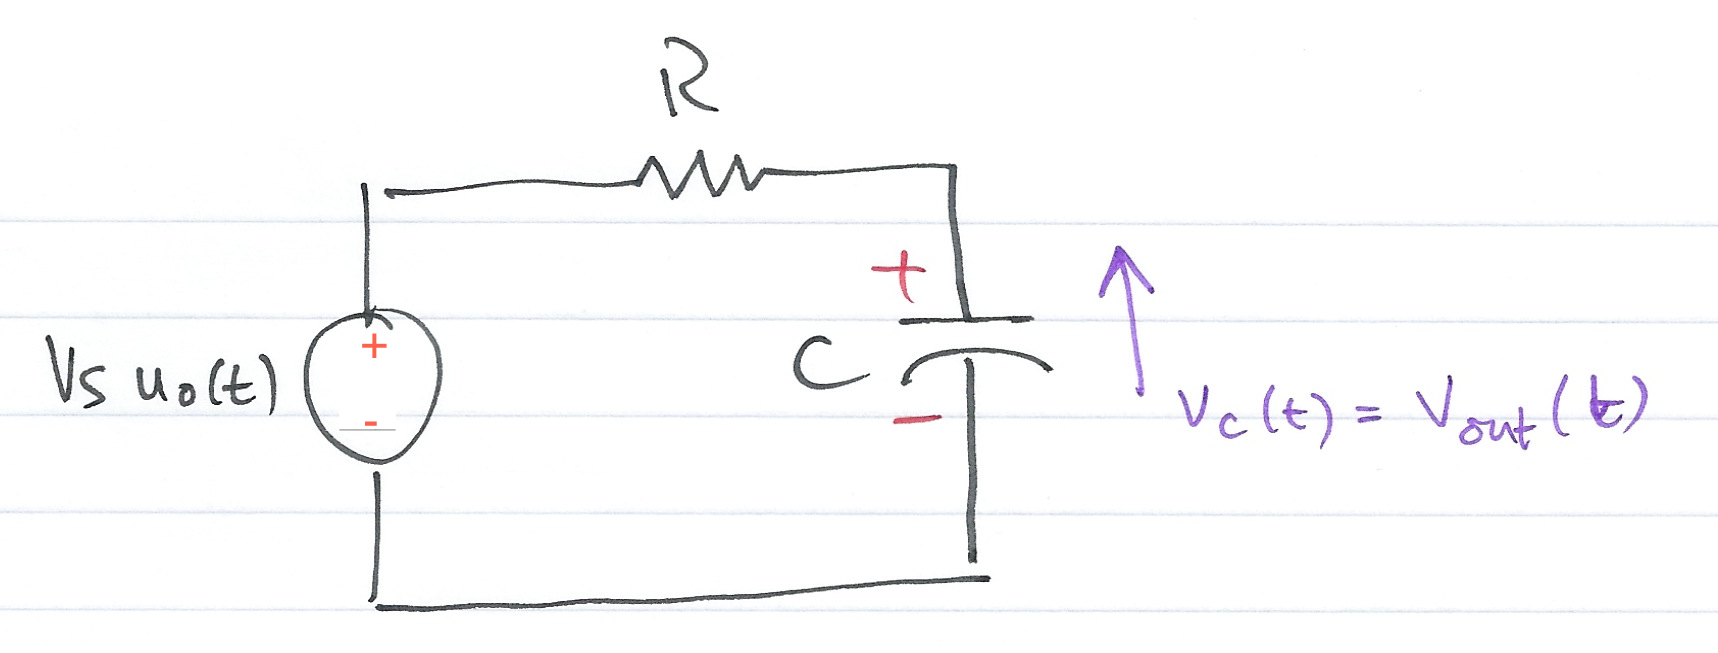 R
+
Vs u₀(t)
+
-
C
-
Vc(t) = Vout(t)